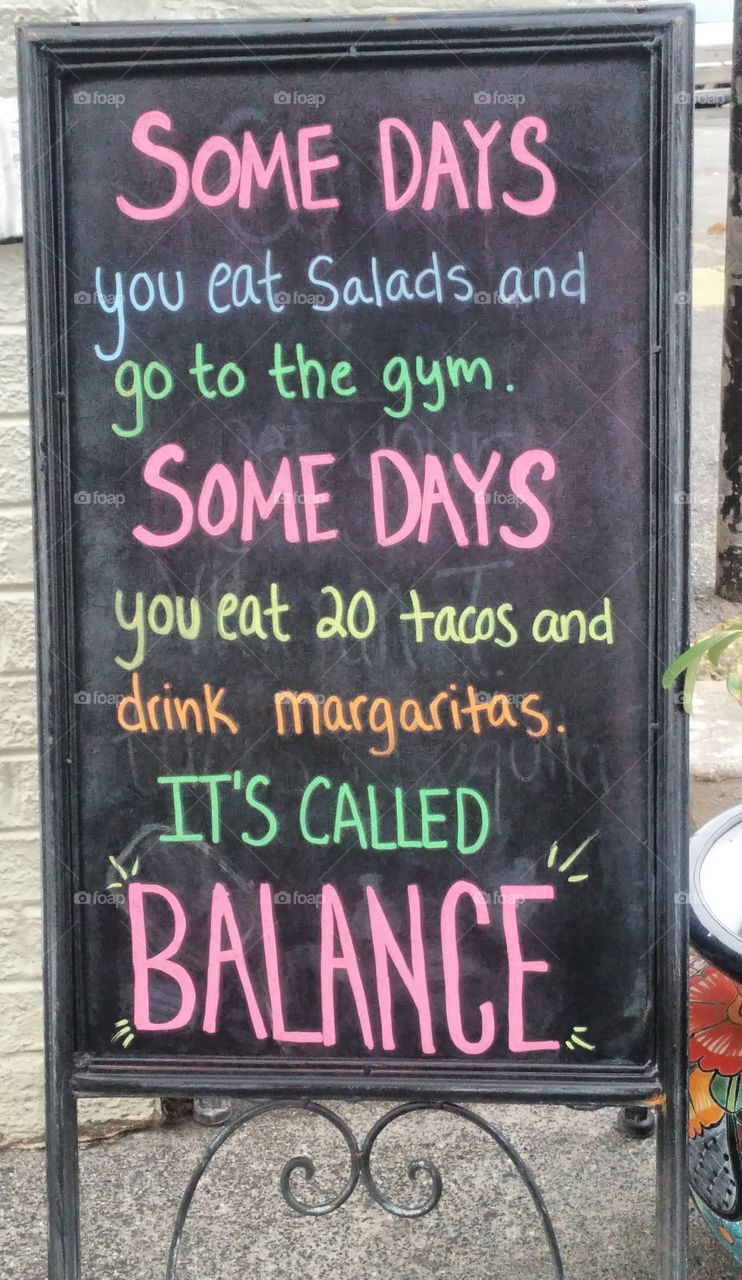 SOME DAYS
you eat Salads and
go to the gym.
SOME DAYS
you eat 20 tacos and
drink margaritas.
IT'S CALLED
BALANCE